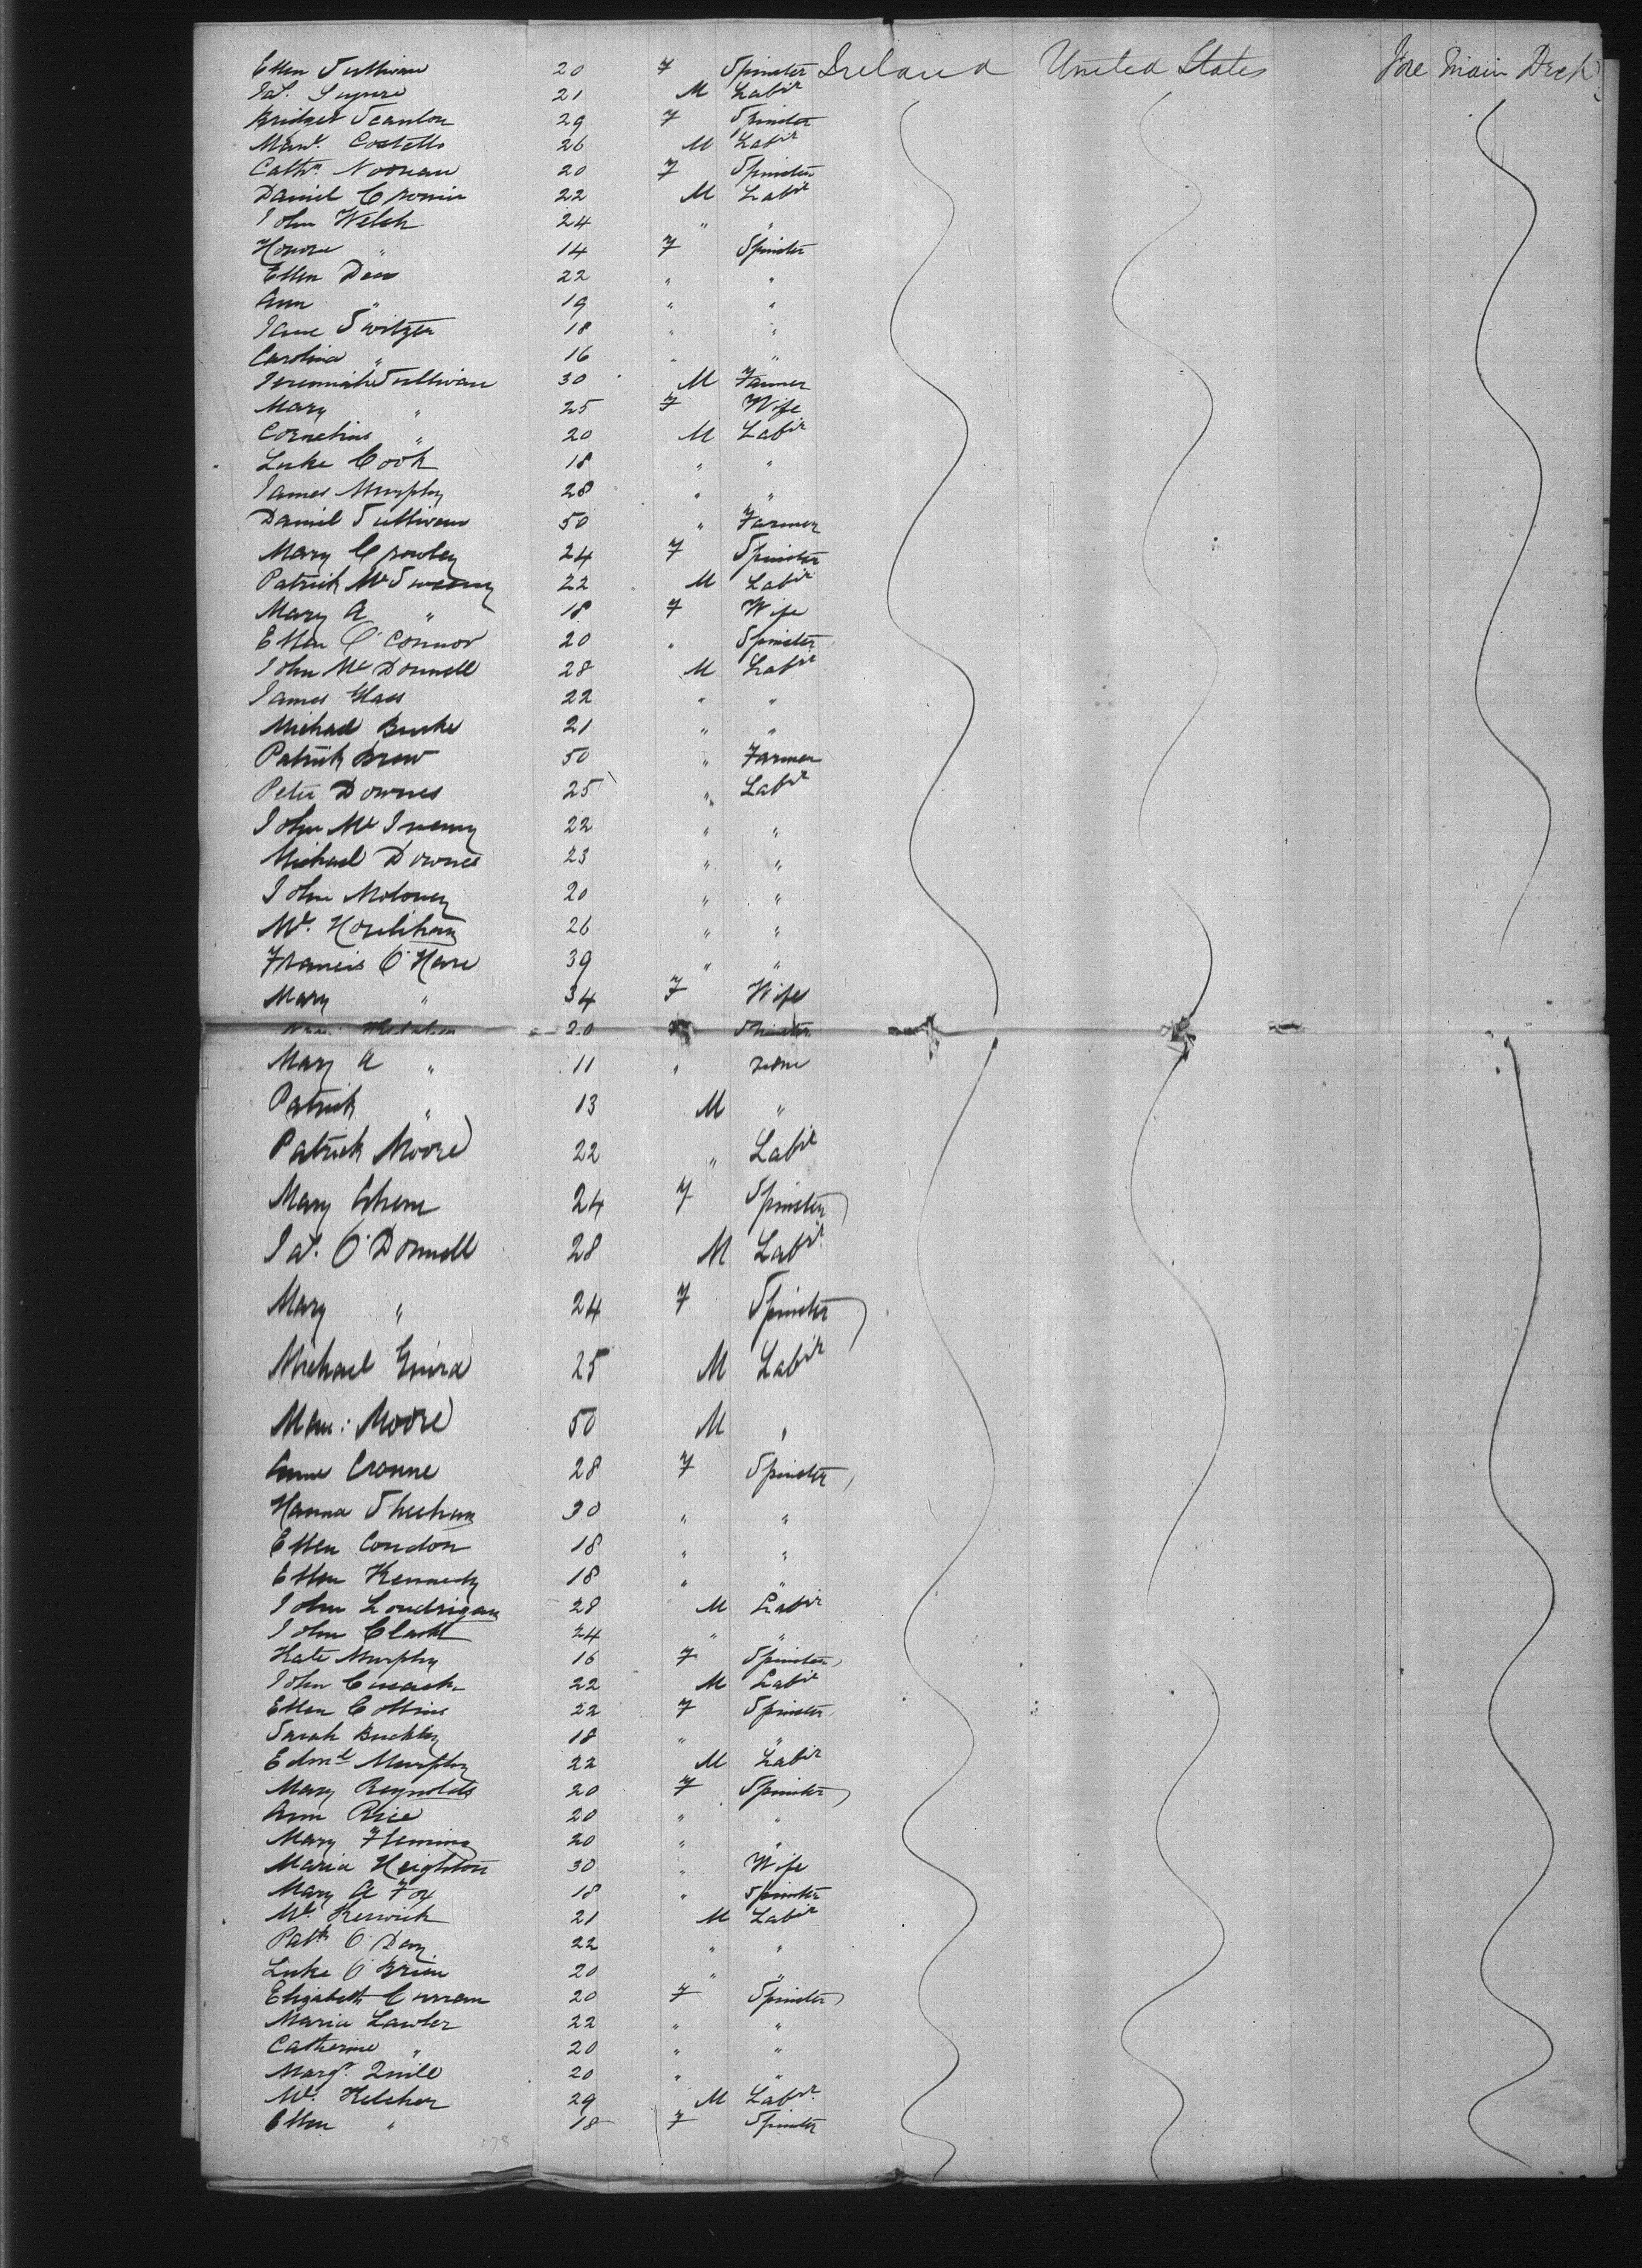 Ellen Sullivan 20 F Spinster Ireland United States Fore Main Deck
Jas. 21 M Labr
Bridget Scanlon 29 F Spinster
Maur. Costello 26 M Labr
Cathn. Noonan 20 F Spinster
Daniel Cronin 22 M Labr
John Welch 24 " "
Honora " 14 F Spinster
Ellen Dea 22 " "
Ann " 19 " "
Jane Switzer 18 " "
Carolina " 16 " "
Jeremiah Sullivan 30 M Farmer
Mary " 25 F Wife
Cornelius " 20 M Labr
Luke Cook 18 " "
James Murphy 28 " "
Daniel Sullivan 50 " Farmer
Mary Crowley 24 F Spinster
Patrick McSweeny 22 M Labr
Mary A " 18 F Wife
Ellen O'Connor 20 " Spinster
John McDonnell 28 M Labr
James Glass 22 " "
Michael Burke 21 " "
Patrick Brew 50 " Farmer
Peter Downes 25 " Labr
John McInerny 22 " "
Michael Downes 23 " "
John Moloney 20 " "
Ml. Houlihan 26 " "
Francis O'Hare 39 " "
Mary " 34 F Wife
20 Spinster
Mary A " 11 " none
Patrick " 13 M "
Patrick Moore 22 " Labr
Mary Ahern 24 F Spinster
Jas. O'Donnell 28 M Labr
Mary " 24 F Spinster
Michael 25 M Labr
Mau: Moore 50 M "
Anne Cronne 28 F Spinster
Hanna Sheehan 30 " "
Ellen Condon 18 " "
Ellen Kennedy 18 " "
John Londrigan 28 M Labr
John Clarke 24 " "
Kate Murphy 16 F Spinster
John Cusack 22 M Labr
Ellen Collins 22 F Spinster
Sarah Buckley 18 " "
Edmd. Murphy 22 M Labr
Mary Reynolds 20 F Spinster
Ann Rice 20 " "
Mary Fleming 20 " "
Maria Heighton 30 " Wife
Mary A Fox 18 " Spinster
Ml. Kerwick 21 M Labr
Patk. O'Dea 22 " "
Luke O'Brien 20 " "
Elizabeth Curran 20 F Spinster
Maria Lawler 22 " "
Catherine " 20 " "
Margt. Quill 20 " "
Ml. Keleher 29 M Labr
Ellen " 18 F Spinster
178